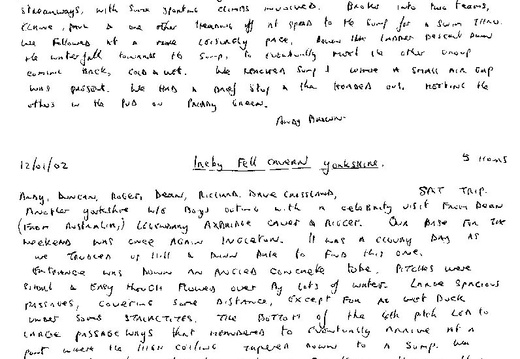 streamways, with some sporting climbs involved. Broke into two teams,
& one other teaming off at speed to the sump for a swim
We followed at a more leisurely pace, down the ladder descent down
the waterfall towards the sump, to eventually meet the other group
coming back, cold & wet. We reached sump 1 where a small air gap
was present. We had a brief stop & then headed out, meeting the
others in the pub on Priddy Green.
Andy Brown
12/01/02 Ireby Fell Cavern Yorkshire. 5 Hours
Andy, Duncan, Roger, Dean, Richard, Dave Crossland, SAT TRIP.
Another Yorkshire w/e Boys outing with a celebrity visit from Dean
(From Australia,) legendary Axbridge caver & rigger. Our base for the
weekend was once again Ingleton. It was a cloudy day as
we trudged up hill & down dale to find this one.
Entrance was down an angled concrete tube. Pitches were
short & easy though flowed over by lots of water. Large spacious
passages, covering some distance, except for a wet duck
under some stalactites. The bottom of the 4th pitch led to
large passageways that meandered to eventually arrive at a
point where the high ceiling tapered down to a sump. We